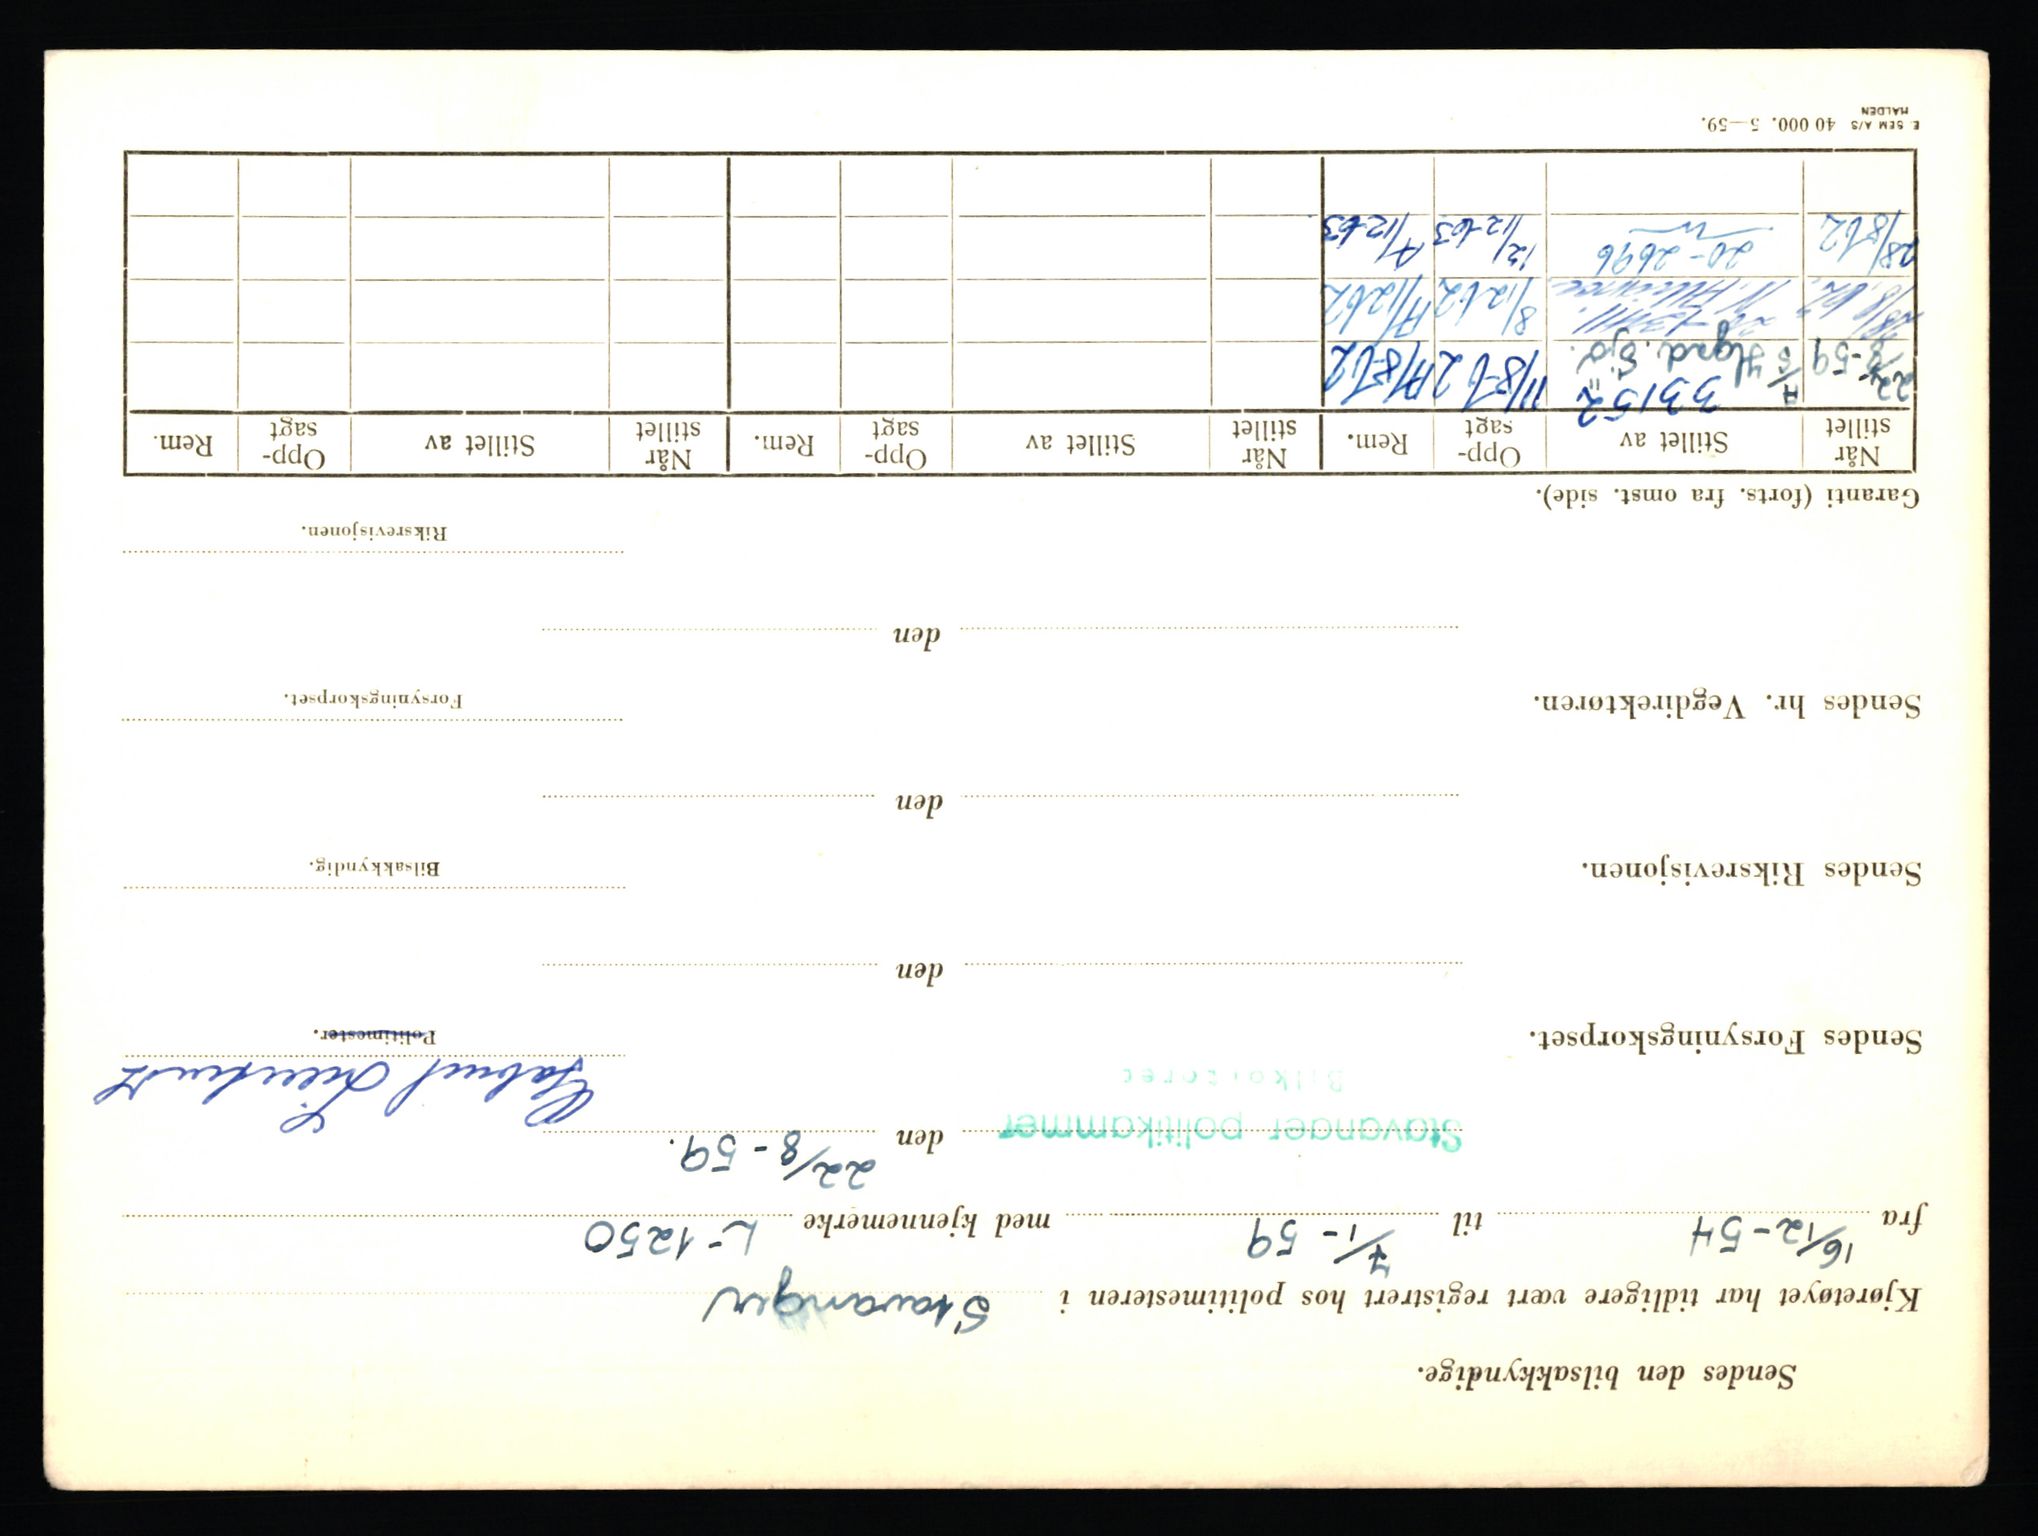 Sendes den bilsakkyndige.
Kjøretøyet har tidligere vært registrert hos politimesteren i Stavanger
fra 16/12-54 til 7/1-59 med kjennemerke L-1250
Stavanger politikammer den 22/8-59.
Bilkontoret
Politimester.
Sendes Forsyningskorpset.
den
Bilsakkyndig.
Sendes Riksrevisjonen.
den
Forsyningskorpset.
Sendes hr. Vegdirektøren.
den
Riksrevisjonen.
Garanti (forts. fra omst. side).
Når stillet Stillet av Opp-sagt Rem. Når stillet Stillet av Opp-sagt Rem. Når stillet Stillet av Opp-sagt Rem.
33152
22/8-59 A/S Hgsd. Sjø. 11/8-62
8/12 62
28/8 62 20-2696 12/12-63
E. SEM A/S HALDEN 40 000. 5—59.